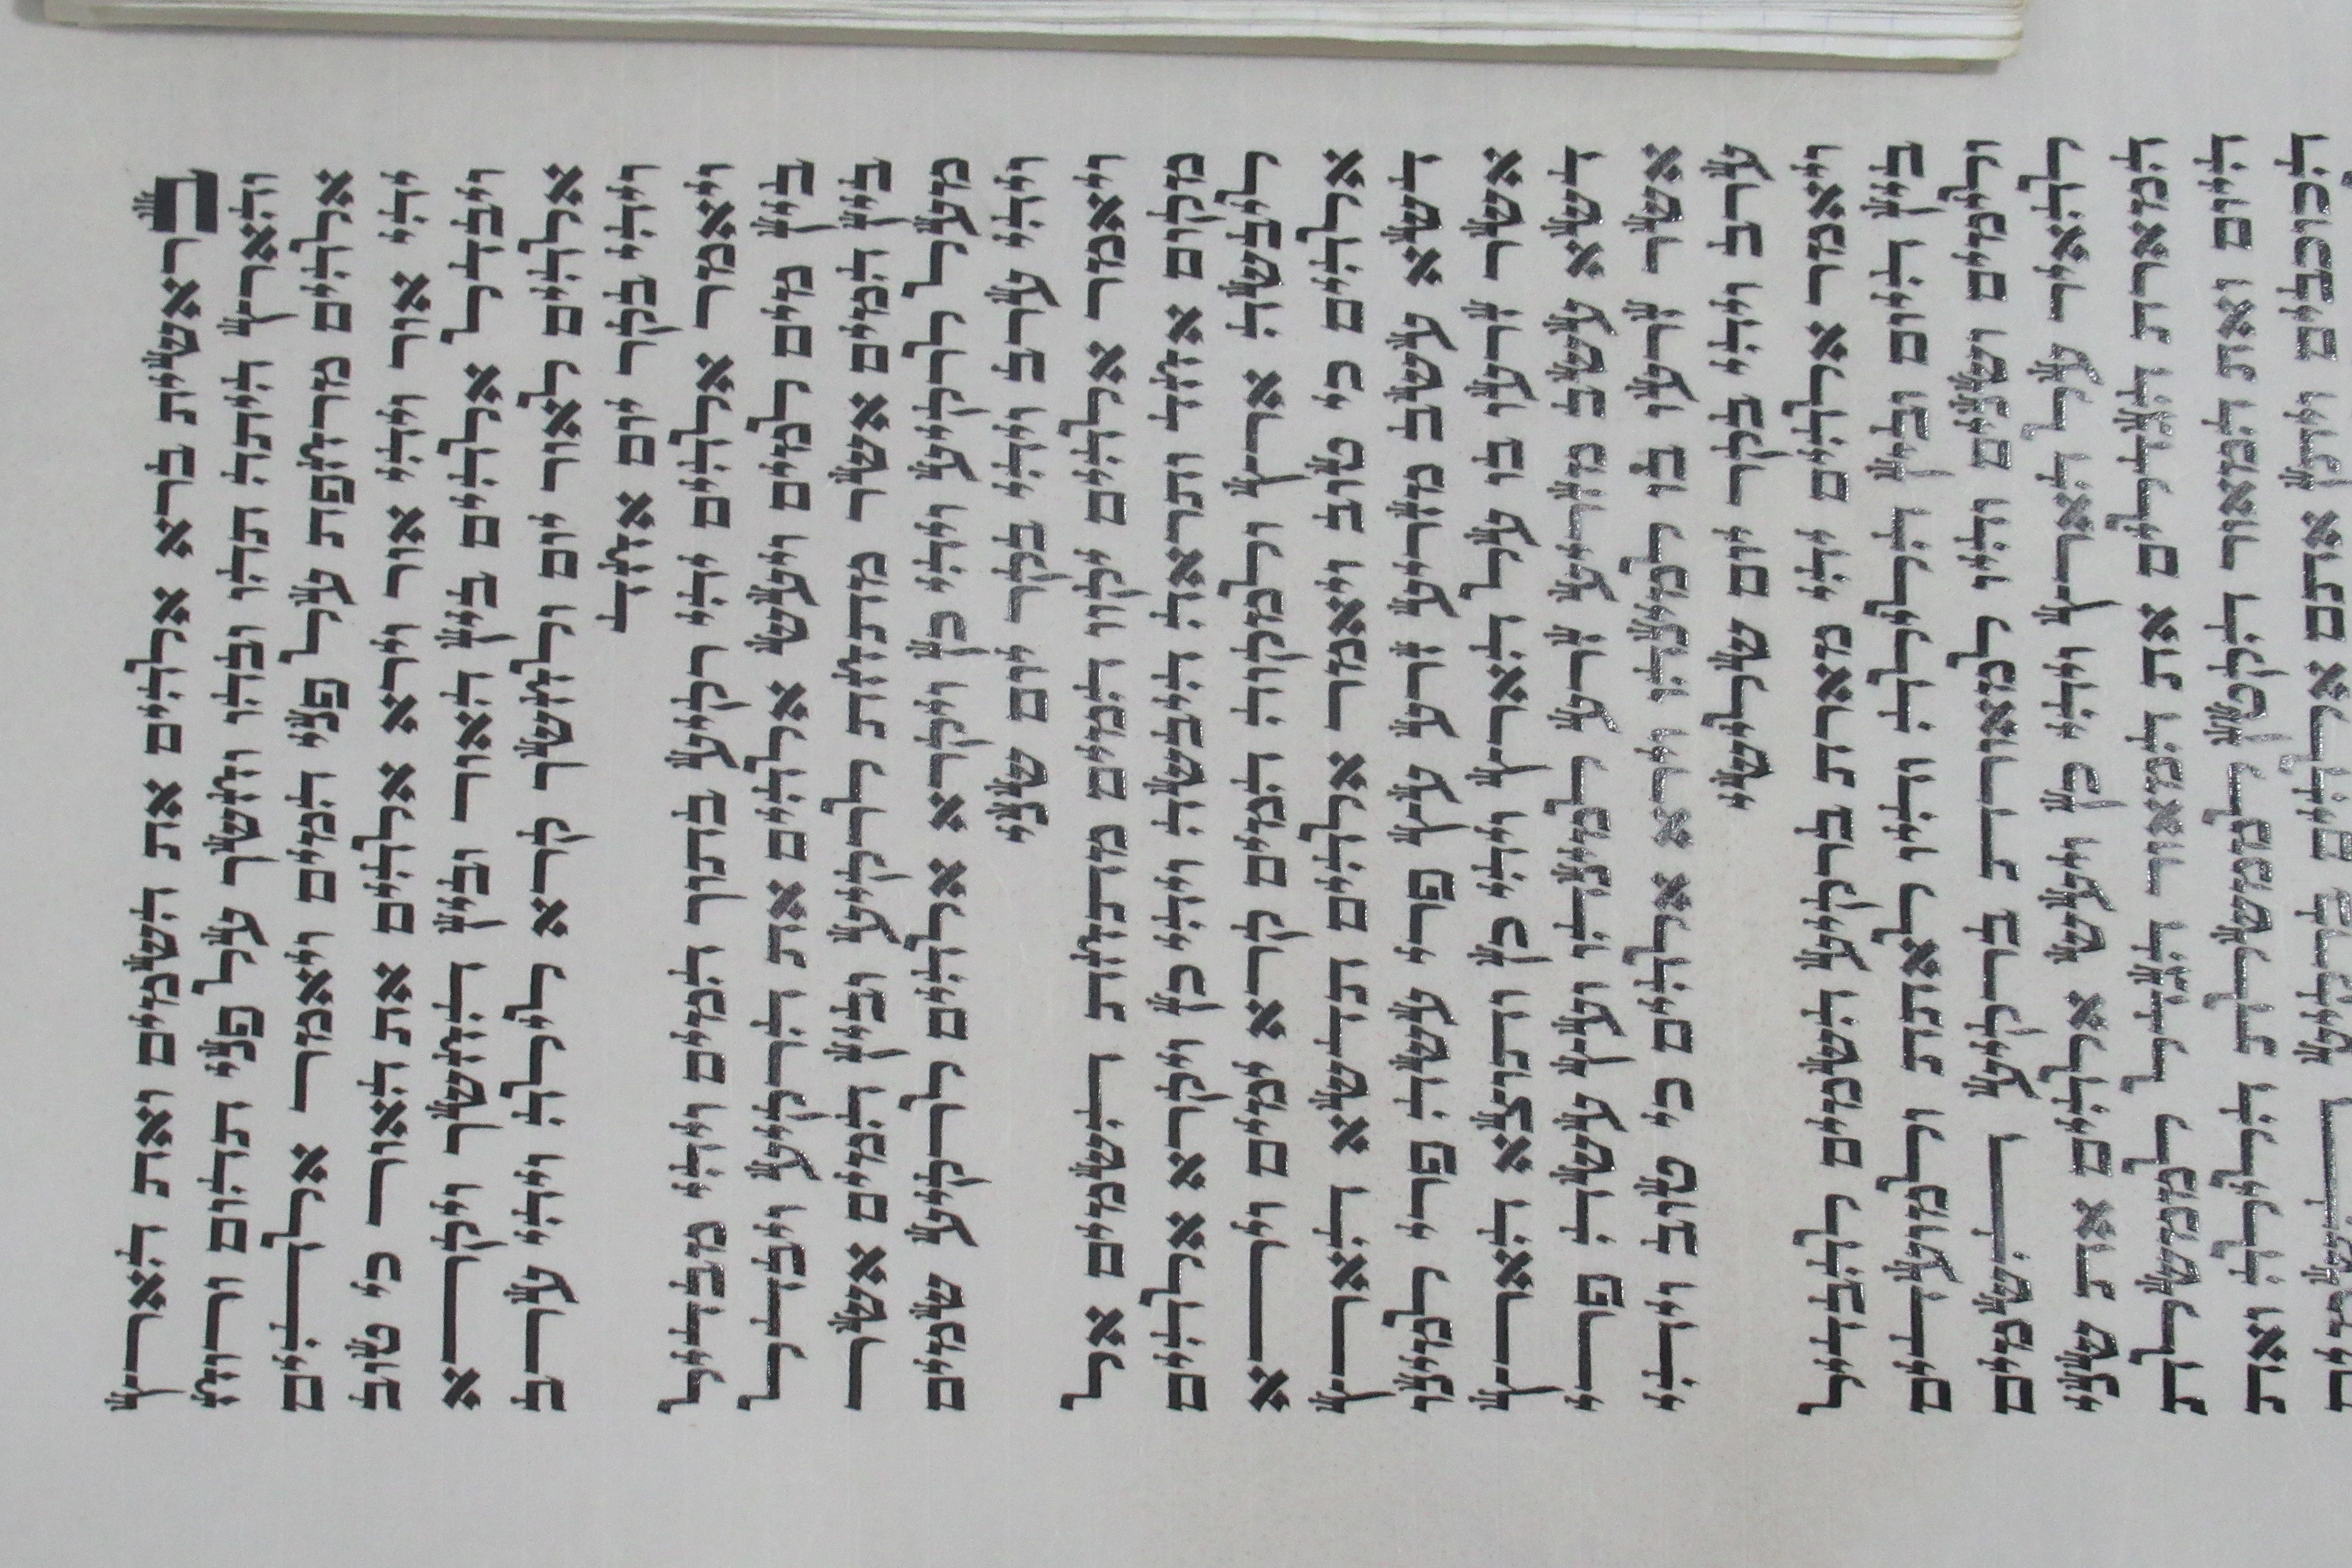 בראשית ברא אלהים את השמים ואת הארץ
והארץ היתה תהו ובהו וחשך על פני תהום ורוח
אלהים מרחפת על פני המים ויאמר אלהים
יהי אור ויהי אור וירא אלהים את האור כי טוב
ויבדל אלהים בין האור ובין החשך ויקרא
אלהים לאור יום ולחשך קרא לילה ויהי ערב
ויהי בקר יום אחד
ויאמר אלהים יהי רקיע בתוך המים ויהי מבדיל
בין מים למים ויעש אלהים את הרקיע ויבדל
בין המים אשר מתחת לרקיע ובין המים אשר
מעל לרקיע ויהי כן ויקרא אלהים לרקיע שמים
ויהי ערב ויהי בקר יום שני
ויאמר אלהים יקוו המים מתחת השמים אל
מקום אחד ותראה היבשה ויהי כן ויקרא אלהים
ליבשה ארץ ולמקוה המים קרא ימים וירא
אלהים כי טוב ויאמר אלהים תדשא הארץ
דשא עשב מזריע זרע עץ פרי עשה פרי למינו
אשר זרעו בו על הארץ ויהי כן ותוצא הארץ
דשא עשב מזריע זרע למינהו ועץ עשה פרי
אשר זרעו בו למינהו וירא אלהים כי טוב ויהי
ערב ויהי בקר יום שלישי
ויאמר אלהים יהי מארת ברקיע השמים להבדיל
בין היום ובין הלילה והיו לאתת ולמועדים
ולימים ושנים והיו למאורת ברקיע השמים
להאיר על הארץ ויהי כן ויעש אלהים את שני
המארת הגדלים את המאור הגדל לממשלת
היום ואת המאור הקטן לממשלת הלילה ואת
הכוכבים ויתן אתם אלהים ברקיע השמים